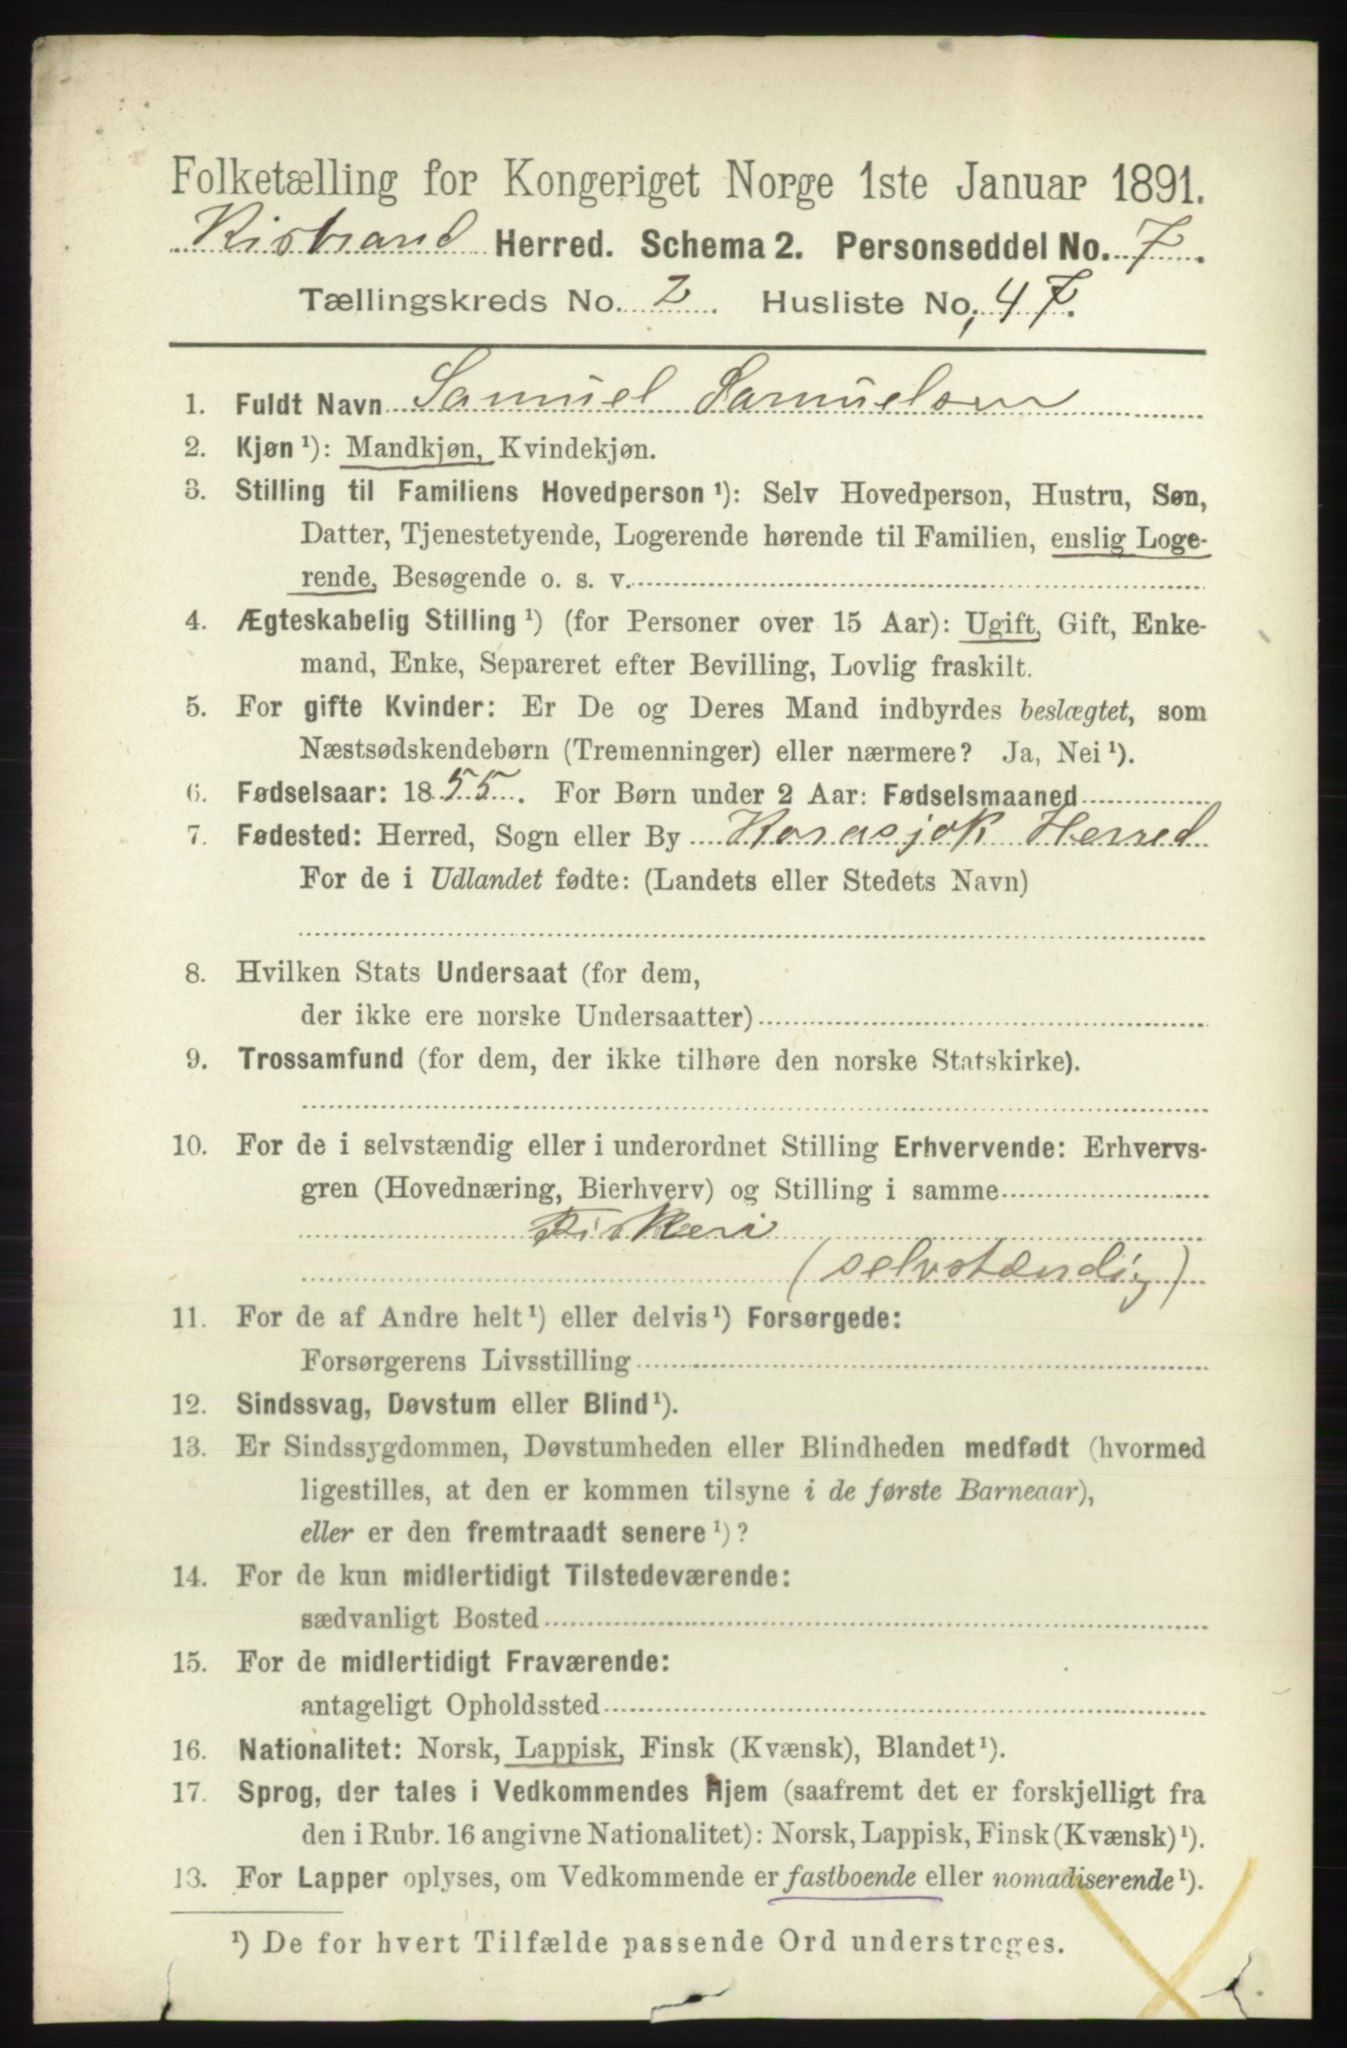 Folketælling for Kongeriget Norge 1ste Januar 1891.
Kistrand Herred. Schema 2. Personseddel No. 7.
Tællingskreds No. 2. Husliste No. 47.
1. Fuldt Navn Samuel Samuelsen
2. Kjøn ¹): Mandkjøn, Kvindekjøn.
3. Stilling til Familiens Hovedperson ¹): Selv Hovedperson, Hustru, Søn,
Datter, Tjenestetyende, Logerende hørende til Familien, enslig Loge-
rende, Besøgende o. s. v.
4. Ægteskabelig Stilling ¹) (for Personer over 15 Aar): Ugift, Gift, Enke-
mand, Enke, Separeret efter Bevilling, Lovlig fraskilt.
5. For gifte Kvinder: Er De og Deres Mand indbyrdes beslægtet, som
Næstsødskendebørn (Tremenninger) eller nærmere? Ja, Nei ¹).
6. Fødselsaar: 1855. For Børn under 2 Aar: Fødselsmaaned
7. Fødested: Herred, Sogn eller By Karasjok Herred
For de i Udlandet fødte: (Landets eller Stedets Navn)
8. Hvilken Stats Undersaat (for dem,
der ikke ere norske Undersaatter)
9. Trossamfund (for dem, der ikke tilhøre den norske Statskirke).
10. For de i selvstændig eller i underordnet Stilling Erhvervende: Erhvervs-
gren (Hovednæring, Bierhverv) og Stilling i samme
Fiskeri
(selvstændig)
11. For de af Andre helt ¹) eller delvis ¹) Forsørgede:
Forsørgerens Livsstilling
12. Sindssvag, Døvstum eller Blind ¹).
13. Er Sindssygdommen, Døvstumheden eller Blindheden medfødt (hvormed
ligestilles, at den er kommen tilsyne i de første Barneaar),
eller er den fremtraadt senere ¹)?
14. For de kun midlertidigt Tilstedeværende:
sædvanligt Bosted
15. For de midlertidigt Fraværende:
antageligt Opholdssted
16. Nationalitet: Norsk, Lappisk, Finsk (Kvænsk), Blandet ¹).
17. Sprog, der tales i Vedkommendes Hjem (saafremt det er forskjelligt fra
den i Rubr. 16 angivne Nationalitet): Norsk, Lappisk, Finsk (Kvænsk) ¹).
13. For Lapper oplyses, om Vedkommende er fastboende eller nomadiserende ¹).
¹) De for hvert Tilfælde passende Ord understreges.